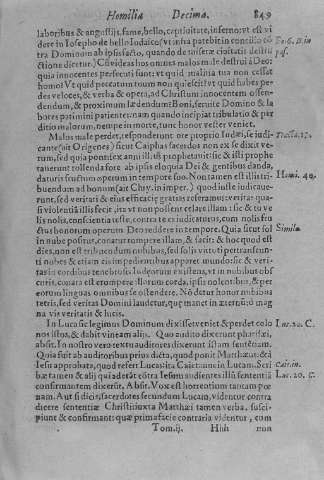 Homilia Decima. 849
laboribus & angustijs, fame, bello, captiuitate, inferno: vt est vi
dere in Iosepho de bello Iudaico (vt infra patebit in concilio cō Ex 6. D. in
tra Dominum ab ipsis facto, quando de miseræ ciuitatis destru pas.
ctione dicetur.) O vide as hos omnes malos male destrui à Deo:
quia innocentes persecuti sunt: vt quid malitia tua non cessat
homo? Vt quid peccatum tuum non quiescit? vt quid habes pe
des veloces, & verba & opera, ad Christum innocentem offen-
dendum, & proximum lædendum? Boni, seruite Domino & la
bores patimini patienter: nam quando incipiat tribulatio & per
ditio malorum, nempe in morte, tunc honor vester veniet.
Malos male perdet, responderunt ore proprio Iudæi, se iudi-
cante (ait Origenes) sicut Caiphas sacerdos non ex se dixit ve-
rum, sed quia pontifex anni illius prophetauit: sic & illi prophe
tauerunt tollenda fore ab ipsis eloquia Dei & gentibus danda,
daturis fructum operum in tempore suo. Non tamen est illi tri- Homi. 40.
buendum ad bonum (ait Chry. in imper.) quod iuste iudicaue-
runt, sed veritati & eius efficaciæ gratias referamus: veritas qua-
si violentia illis fecit, ita vt non possent celare illam: sic & tu ve
lis nolis, conscientia teste, contra te eri iudicaturus, cum nolis fru
ctus bonorum operum Deo reddere in tempore. Quia sicut sol Simile
in nube positus, conatur rumpere illam, & facit: & hoc quod est
dies, non est tribuendum nubibus, sed soli virtuti pertranseun-
ti nubes & etiam eis impedientibus apparet mundo: sic & veri-
tas in cordibus tenebrosis Iudæorum existens, vt in nubibus obs
curis, conata est erumpere illorum corda, ipsis nolentibus, & per
eorum linguas omnibus se ostendere. Nō detur honor nubibus
tetris, sed veritas Domini laudetur, quæ manet in æternū & mag
na vis veritatis & lucis.
In Luca sic legimus Dominum dixisse: veniet & perdet colo Luc. 20. C.
nos istos, & dabit vineam alijs. Quo audito dixerunt pharisæi,
absit. In nostro vero textu auditores dixerunt istam sententiam.
Quia fuit ab auditoribus prius dicta, quod ponit Matthæus: & à
Iesu approbata, quod refert Lucas: ita Caietanus in Lucam. Scri Caie. in
bæ tamen & alij qui aderāt cōtra Iesum audientes illā sententiā Luc. 20. C.
confirmantem dixerūt. Absit. Vox est horrentium tantam pœ
nam. Aut si dicis, sacerdotes secundum Lucam, videntur contra
dicere sententiæ Christi: iuxta Matthæi tamen verba, susci-
piunt & confirmant: quæ prima facie contraria videntur, cum
Tom. ij. Hhh non